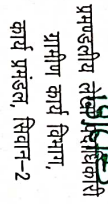 प्रमण्डलीय लेखा पदाधिकारी
ग्रामीण कार्य विभाग,
कार्य प्रमंडल, सिवान-2